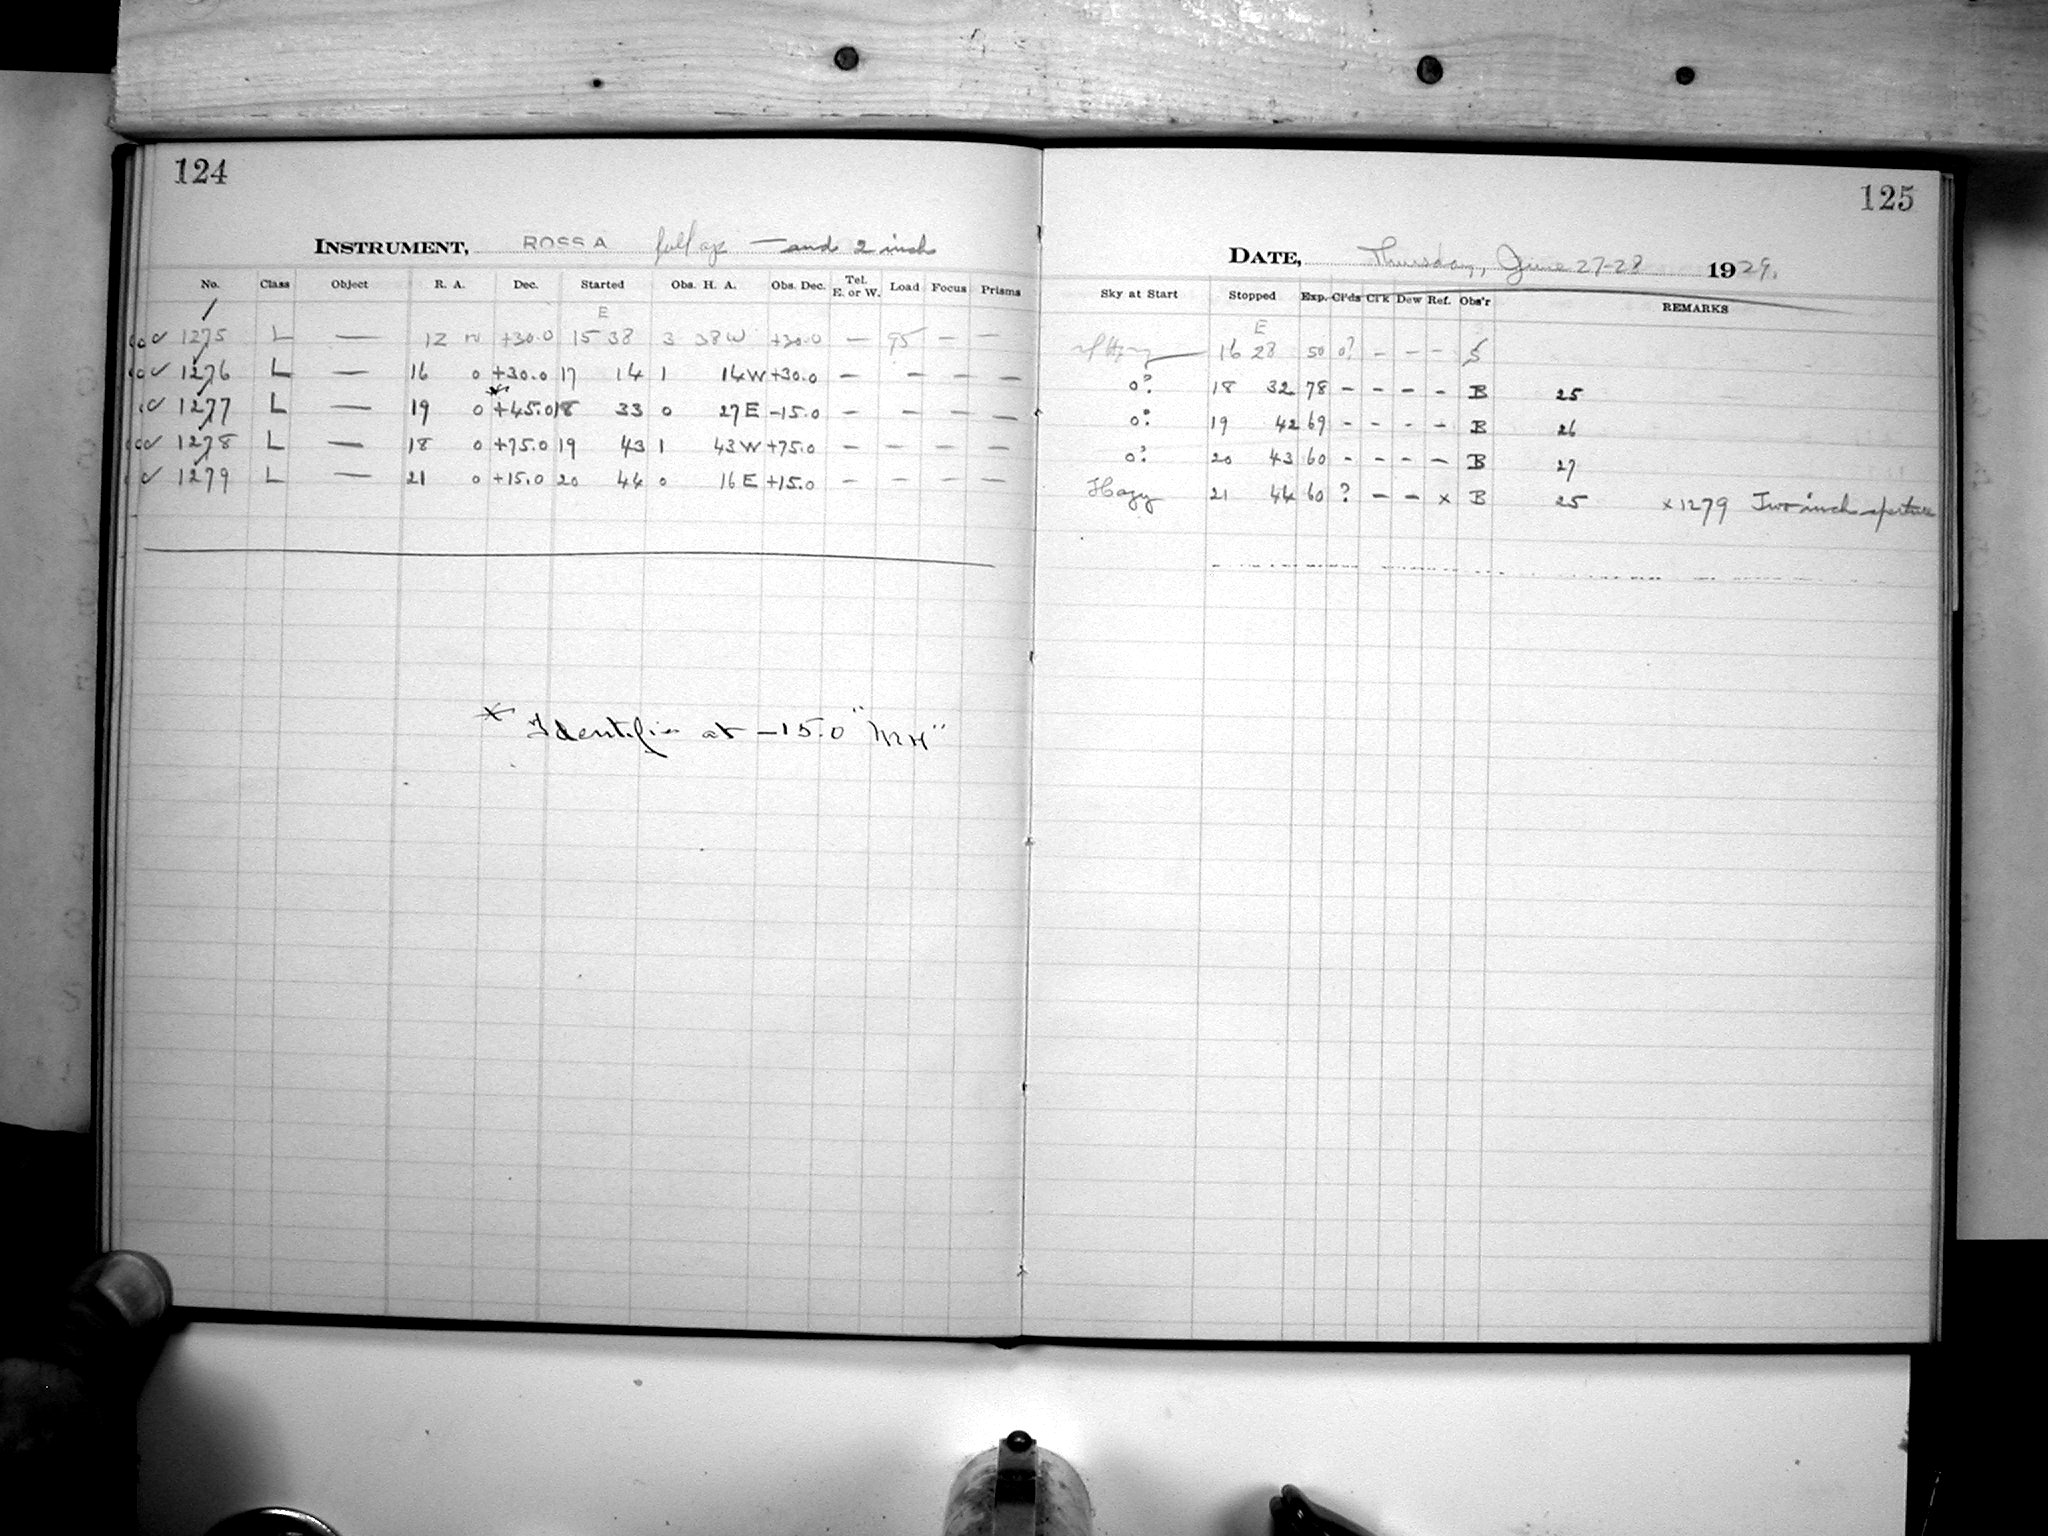 124
INSTRUMENT, ROSS A full ap — and 2 inch
No. Class Object R. A. Dec. Started Obs. H. A. Obs. Dec. Tel. E. or W. Load Focus Prisms
E
1275 L — 12 +30.0 15 38 3 38 W +30.0 — 95 — —
1276 L — 16 0 +30.0 17 14 1 14 W +30.0 — — — —
1277 L — 19 0 *+45.0 18 33 0 27 E -15.0 — — — —
1278 L — 18 0 +75.0 19 43 1 43 W +75.0 — — — —
1279 L — 21 0 +15.0 20 44 0 16 E +15.0 — — — —
* Identifies at -15.0 "
125
DATE, Thursday, June 27-28 1929.
Sky at Start Stopped Exp. Cl'ds Cl'k Dew Ref. Obs'r REMARKS
E
16 28 50 0? - - - S
0? 18 32 78 - - - - B 25
0? 19 42 69 - - - - B 26
0? 20 43 60 - - - - B 27
Hazy 21 44 60 ? - - x B 25 x 1279 Two inch aperture